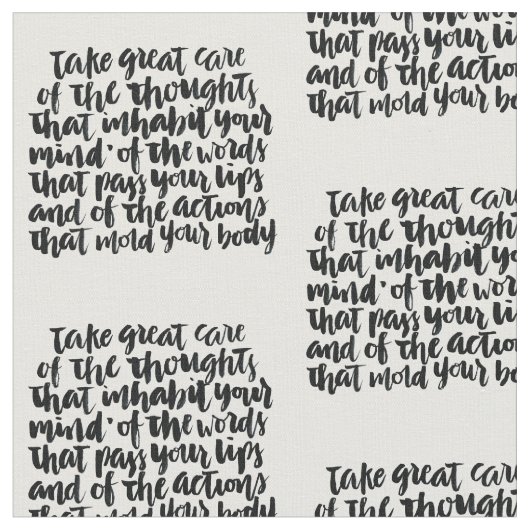 Take great care
of the thoughts
that inhabit your
mind' of the words
that pass your lips
and of the actions
that mold your body
mind' of the
that pass your
and of the
that mold your
Take great care
of the
that inhabit
mind' of the
that pass your
and of the
that mold your
Take great care
of the thoughts
that inhabit your
mind' of the words
that pass your lips
and of the actions
that mold your body
Take great care
of the